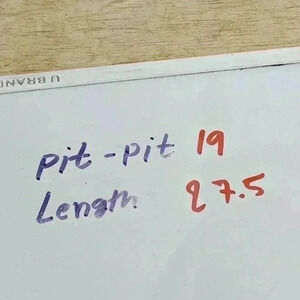 U BRAND
pit-pit 19
Length 27.5